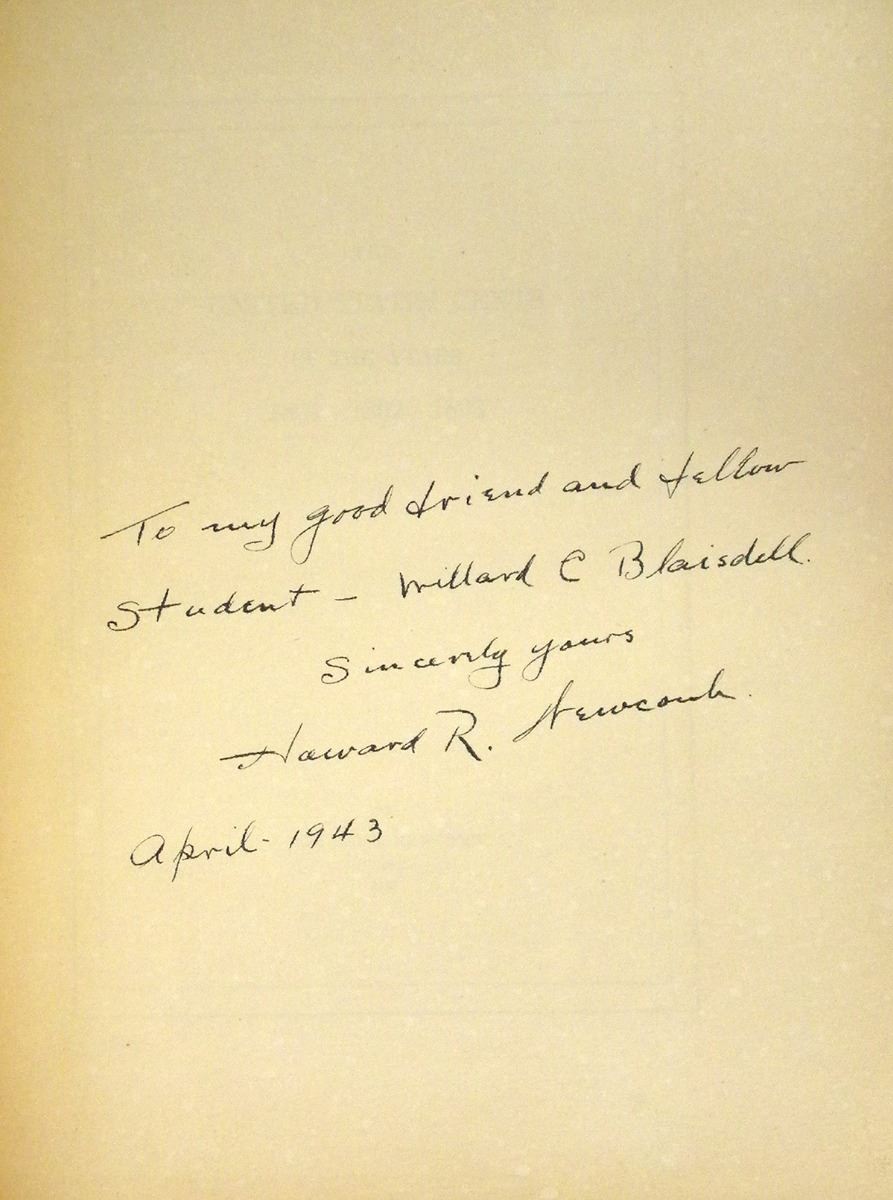 To my good friend and fellow
Student – Willard C Blaisdell.
Sincerely yours
Howard R. Newcomb.
April - 1943